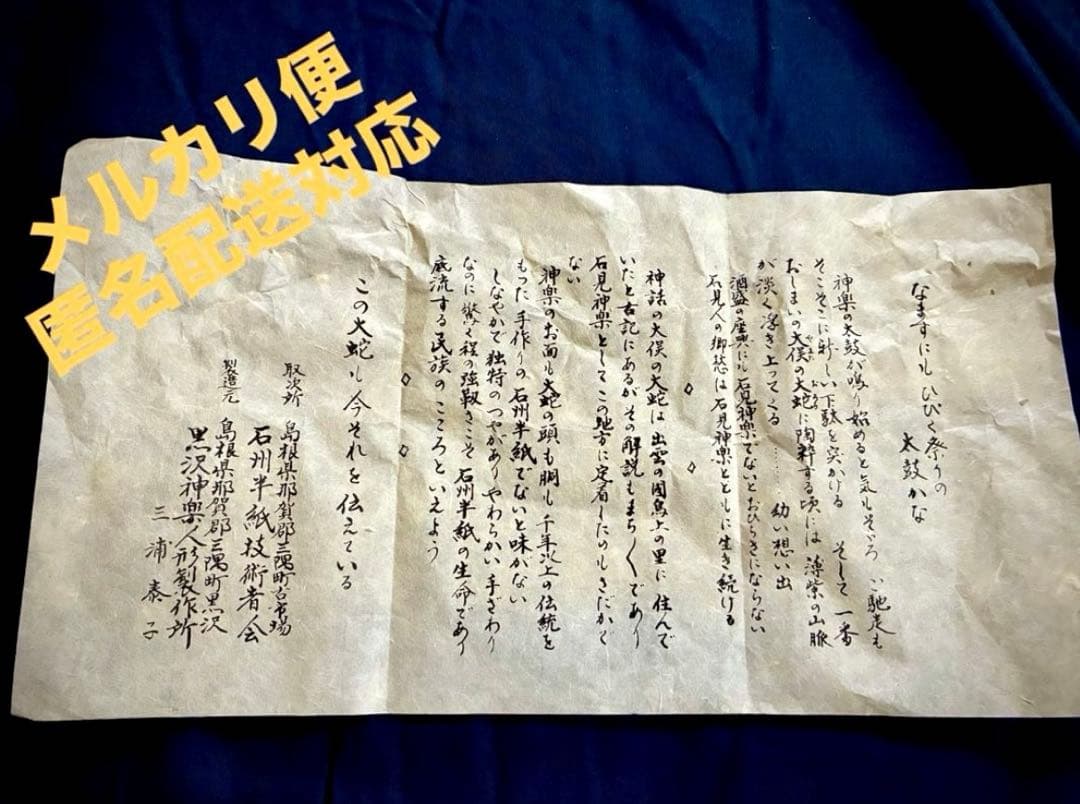 メルカリ便
匿名配送対応
なますにも ひびく祭りの
太鼓かな
神楽の太鼓が鳴り始めると気もそぞろ ご馳走も
そこそこに新しい下駄を突かける そして 一番
おしまいの大俣の大蛇に陶粋する頃には 薄紫の山脈
が淡く浮き上ってくる…… 幼い想い出
酒盛の座興にも石見神楽でないとおひらきにならない
石見人の郷愁は石見神楽とともに生き続ける
神話の大俣の大蛇は 出雲の国鳥上の里に 住んで
いたと古記にあるが その解説もまちまちであり
石見神楽として この地方に定着したのもさだかで
ない
神楽のお面も大蛇の頭も胴も 千年以上の伝統を
もった 手作りの 石州半紙でないと味がない
しなやかで独特のつやがあり やわらかい手ざわり
なのに 驚く程の強靱さこそ 石州半紙の生命であり
底流する民族の こころといえよう
この大蛇も今それを伝えている
取次所 島根県那賀郡三隅町古市場
石州半紙技術者会
製造元 島根県那賀郡三隅町黒沢
黒沢神楽人形製作所
三浦泰子